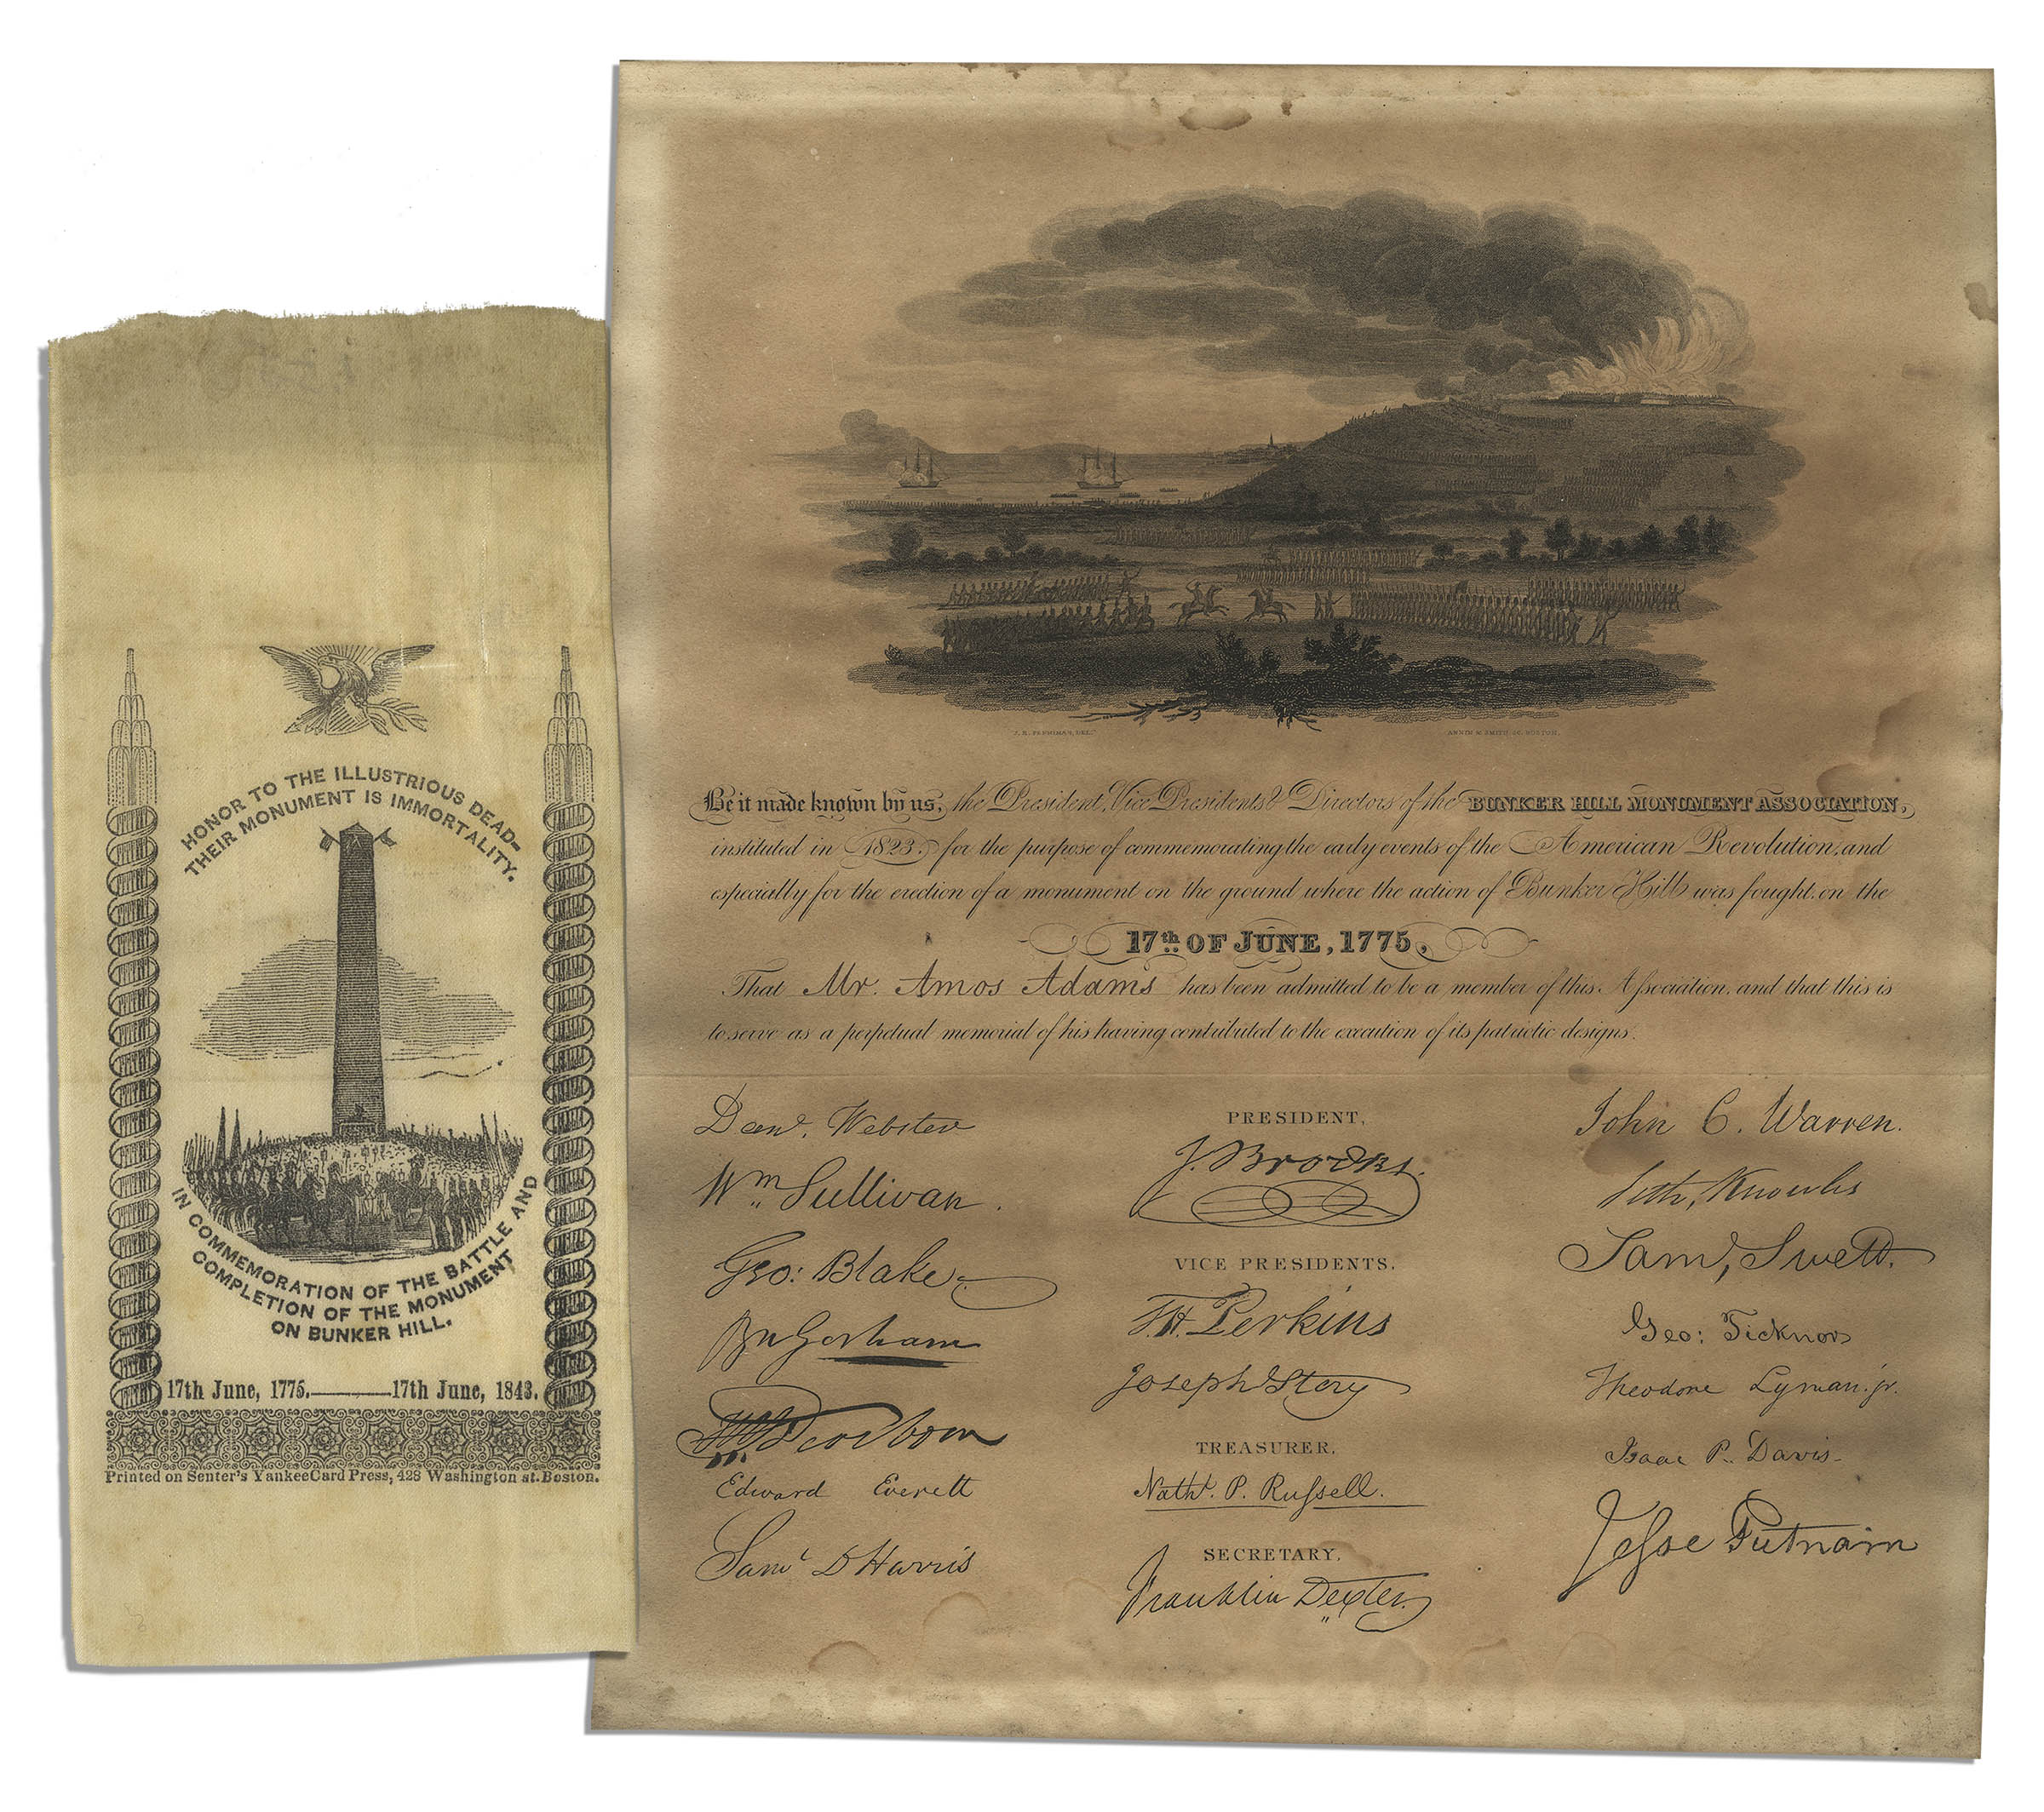 HONOR TO THE ILLUSTRIOUS DEAD-
THEIR MONUMENT IS IMMORTALITY.
IN COMMEMORATION OF THE BATTLE AND
COMPLETION OF THE MONUMENT
ON BUNKER HILL.
17th June, 1775.———17th June, 1843.
Printed on Senter's Yankee Card Press, 428 Washington st. Boston.
ANNIN & SMITH SC. BOSTON.
Be it made known by us, the President, Vice Presidents & Directors of the BUNKER HILL MONUMENT ASSOCIATION,
instituted in 1823, for the purpose of commemorating the early events of the American Revolution, and
especially for the erection of a monument on the ground where the action of Bunker Hill was fought, on the
17th OF JUNE, 1775,
That Mr. Amos Adams has been admitted to be a member of this Association, and that this is
to serve as a perpetual memorial of his having contributed to the execution of its patriotic designs.
Danl. Webster
Wm Sullivan.
Geo: Blake
Bn Gorham
Dearborn
Edward Everett
Saml D Harris
PRESIDENT,
J. Brooks.
VICE PRESIDENTS,
T.H. Perkins
Joseph Story
TREASURER,
Nathl. P. Russell.
SECRETARY,
Franklin Dexter
John C. Warren.
Seth, Knowles
Saml, Swett.
Geo: Ticknor
Theodore Lyman. jr.
Isaac P. Davis.
Jesse Putnam